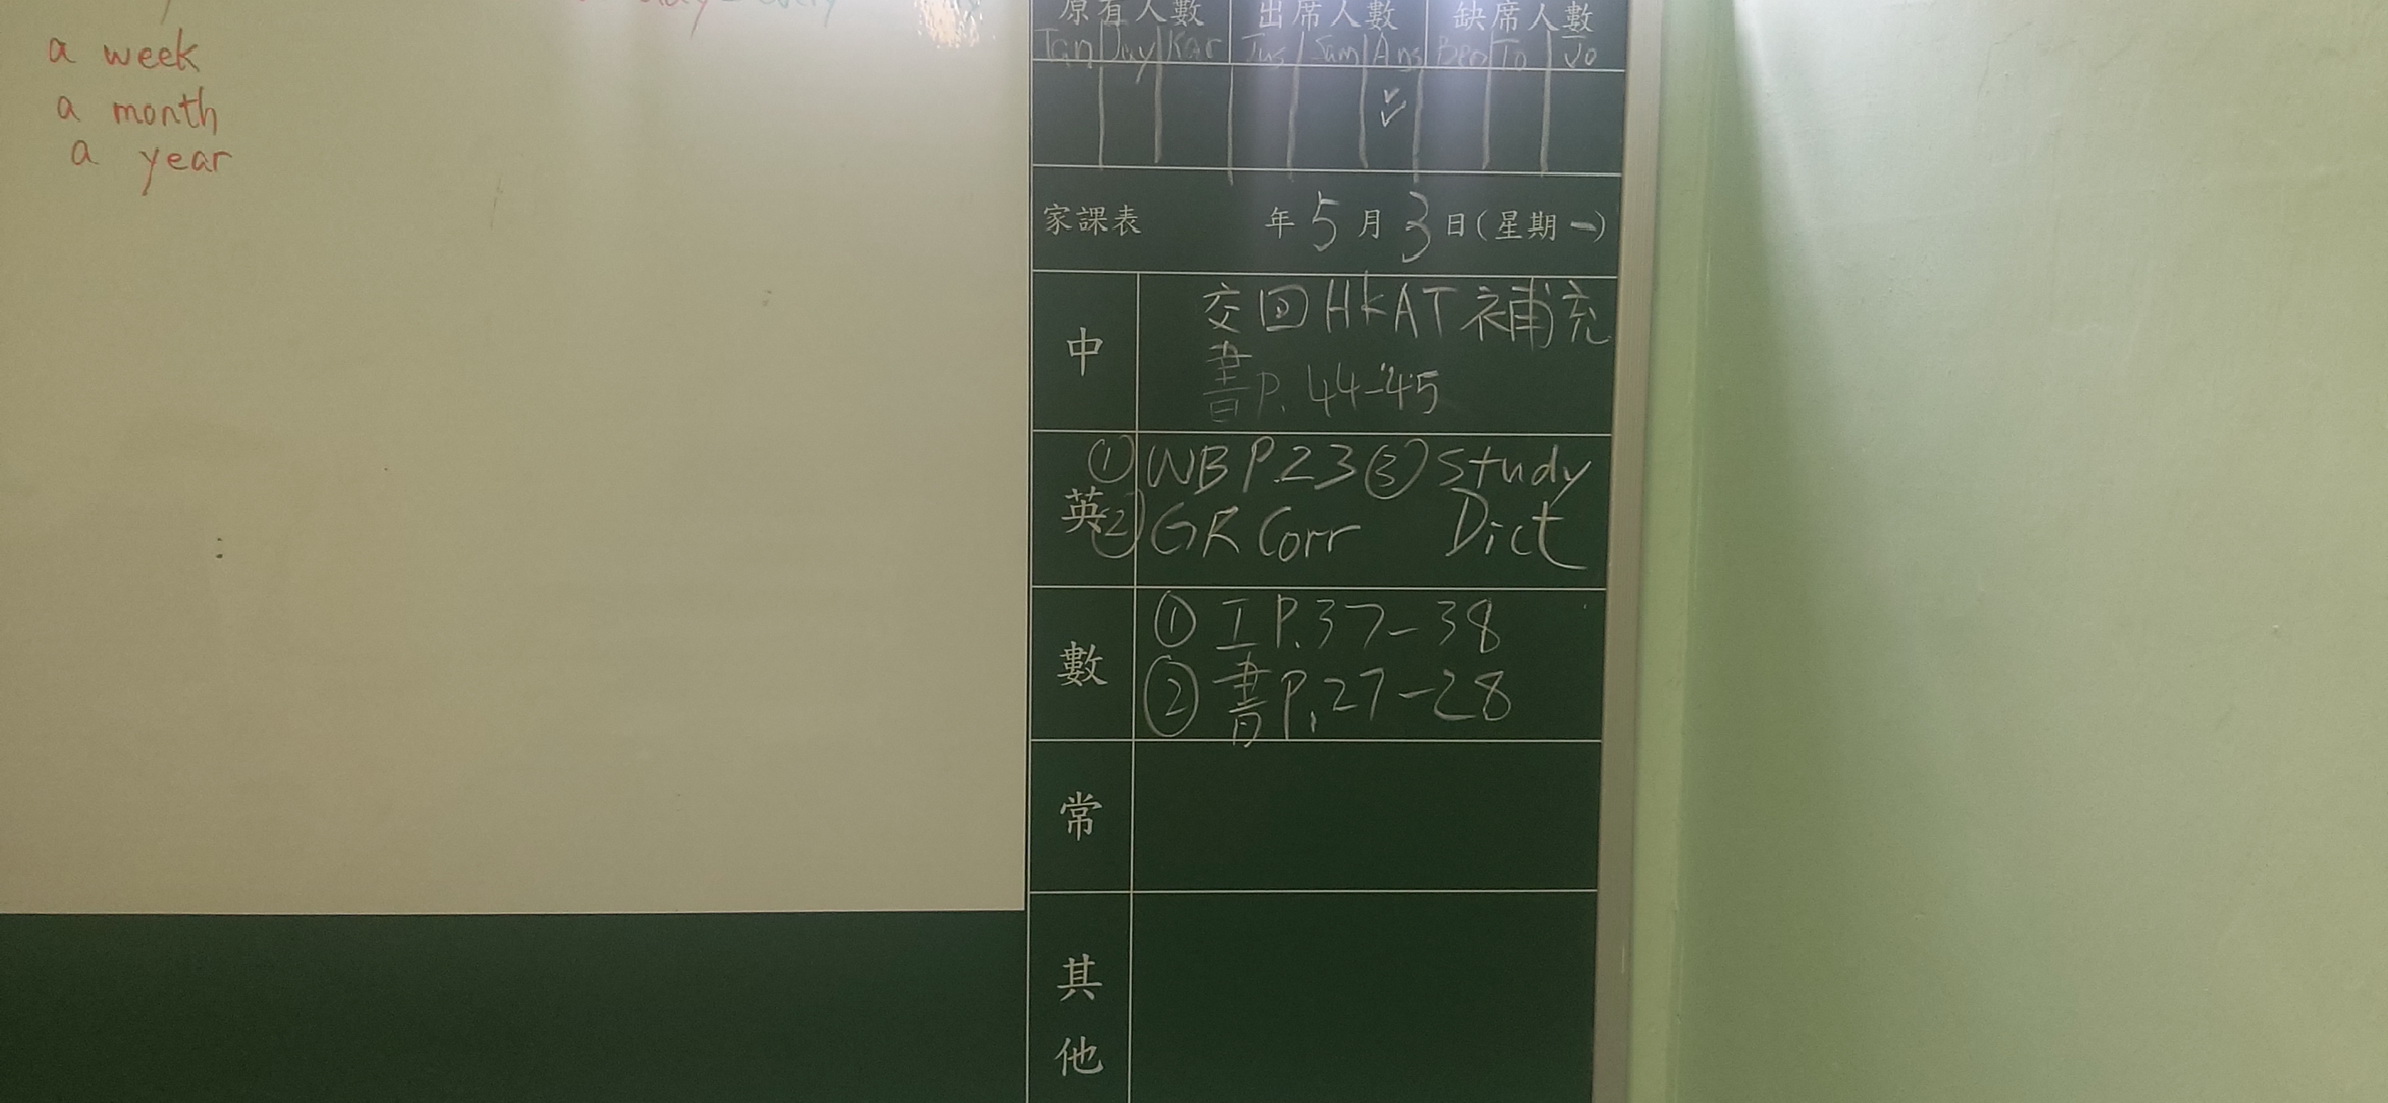 a week
a month
a year
原有人數 出席人數 缺席人數
Jan Day Kar Jus Sam Ang Ben To Jo
家課表 年5月3日(星期一)
中 交回HKAT補充
書P.44-45
英 ①WBP.23 ③Study
②GR Corr Dict
數 ①工P.37-38
②書P.27-28
常
其他